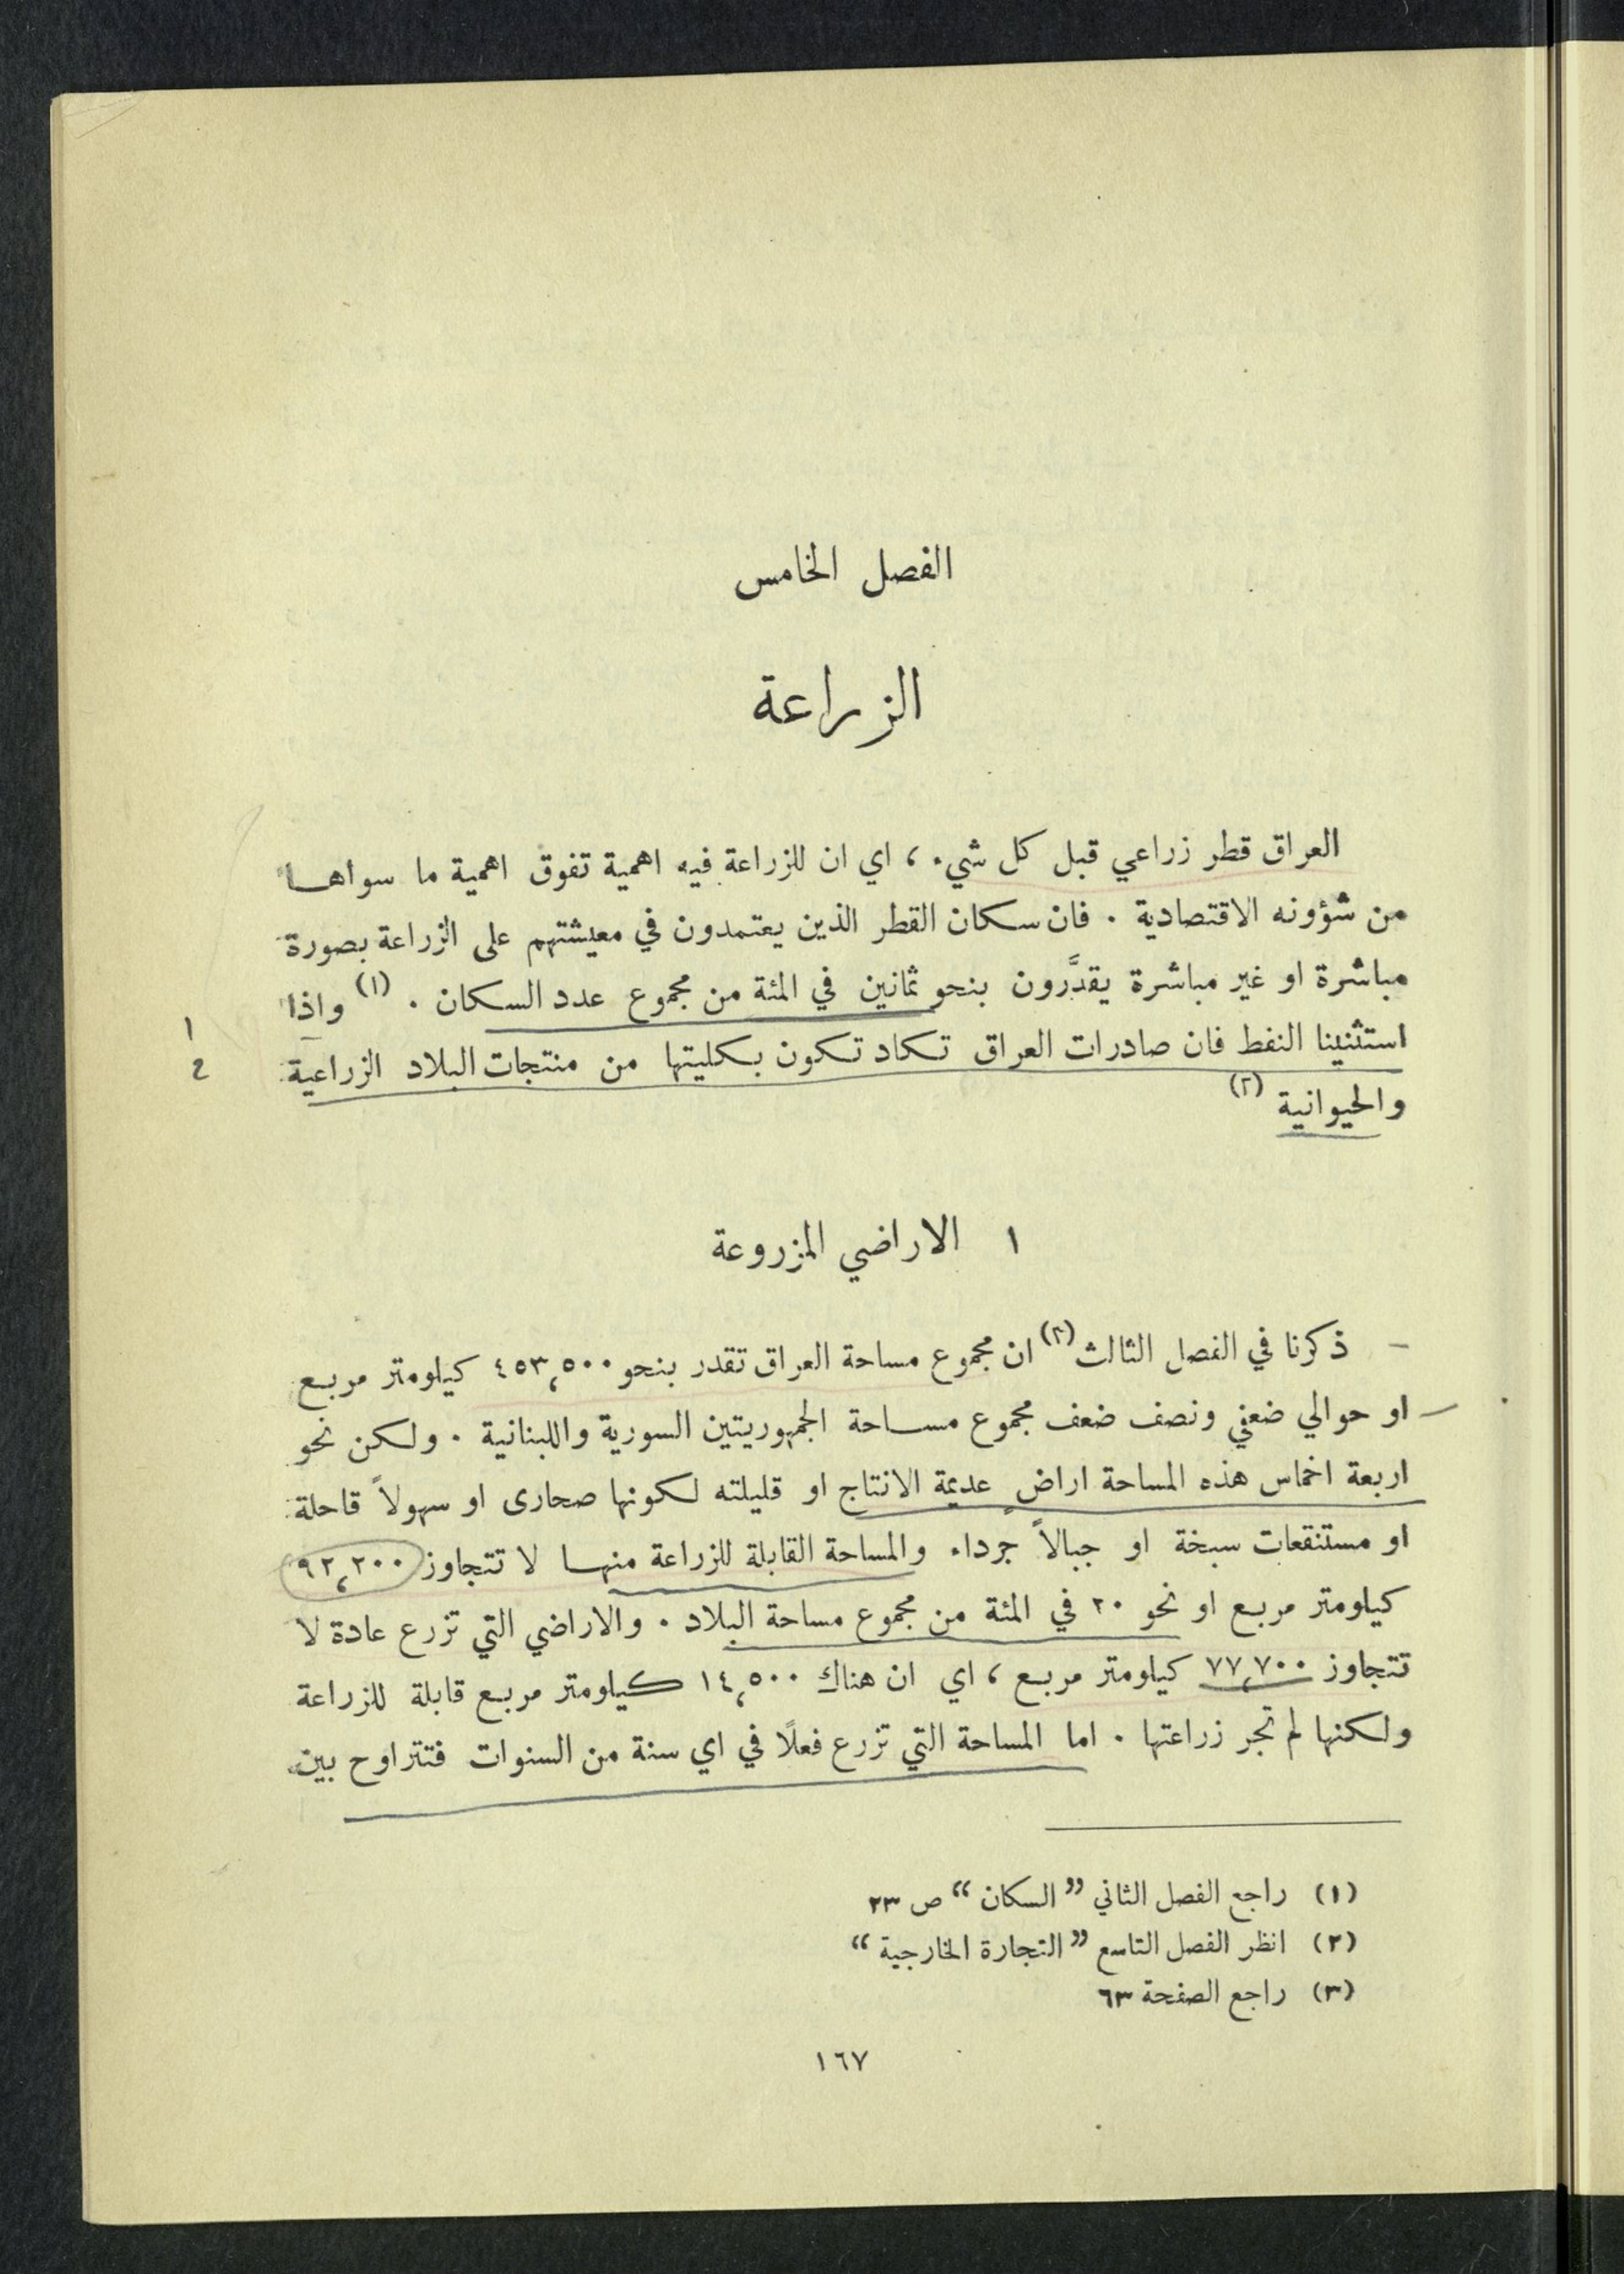 الفصل الخامس
الزراعة
العراق قطر زراعي قبل كل شيء ، اي ان للزراعة فيه اهمية تفوق اهمية ما سواها
من شؤونه الاقتصادية . فان سكان القطر الذين يعتمدون في معيشتهم على الزراعة بصورة
مباشرة او غير مباشرة يقدَّرون بنحو ثمانين في المئة من مجموع عدد السكان . (١) واذا
استثنينا النفط فان صادرات العراق تكاد تكون بكليتها من منتجات البلاد الزراعية
والحيوانية (٢)
١
٢
١ الاراضي المزروعة
– ذكرنا في الفصل الثالث (٣) ان مجموع مساحة العراق تقدر بنحو ٤٥٣,٥٠٠ كيلومتر مربع
او حوالي ضعفي ونصف ضعف مجموع مساحة الجمهوريتين السورية واللبنانية . ولكن نحو
اربعة اخماس هذه المساحة اراضٍ عديمة الانتاج او قليلته لكونها صحارى او سهولاً قاحلة
او مستنقعات سبخة او جبالاً جرداء والمساحة القابلة للزراعة منها لا تتجاوز ٩٢,٢٠٠
كيلومتر مربع او نحو ٢٠ في المئة من مجموع مساحة البلاد . والاراضي التي تزرع عادة لا
تتجاوز ٧٧,٧٠٠ كيلومتر مربع ، اي ان هناك ١٤,٥٠٠ كيلومتر مربع قابلة للزراعة
ولكنها لم تجر زراعتها . اما المساحة التي تزرع فعلًا في اي سنة من السنوات فتتراوح بين
(١) راجع الفصل الثاني ”السكان“ ص ٢٣
(٢) انظر الفصل التاسع ”التجارة الخارجية“
(٣) راجع الصفحة ٦٣
١٦٧